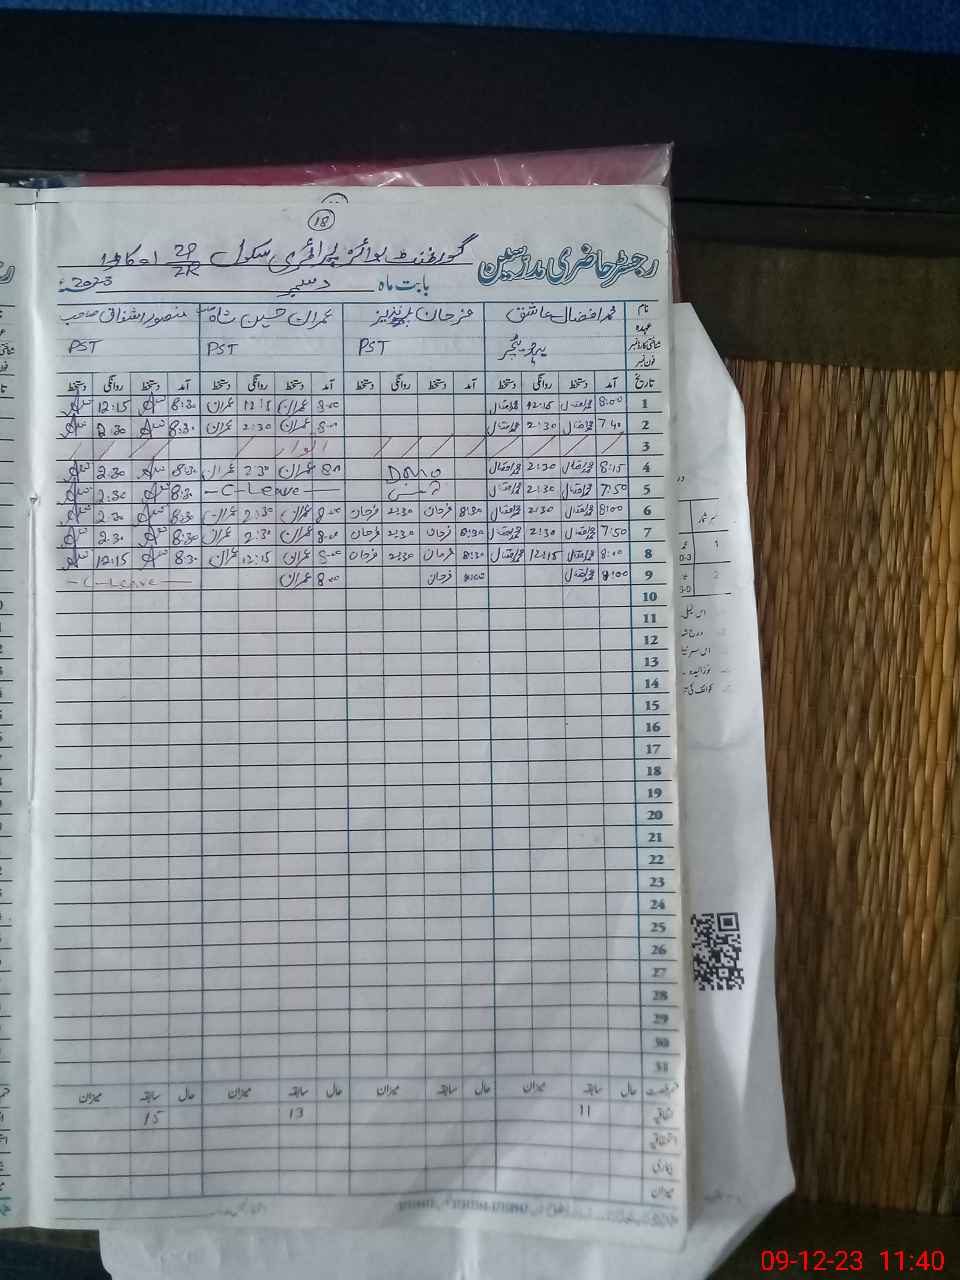 18
رجسٹر حاضری مدرسین گورنمنٹ بوائز پرائمری سکول 2P/2R اوکاڑہ
بابت ماہ دسمبر 2023ء
نام محمد افضال عاشق فرحان پرویز عمران حسین شاہ منصور اشفاق صاحب
عہدہ
شناختی کارڈ نمبر ہیڈ ٹیچر PST PST PST
فون نمبر
تاریخ آمد دستخط روانگی دستخط آمد دستخط روانگی دستخط آمد دستخط روانگی دستخط آمد دستخط روانگی دستخط
1 8:00 محمد افضال 12:15 محمد افضال 8:00 عمران 12:15 عمران 8:30 12:15
2 7:40 محمد افضال 2:30 محمد افضال 8:00 عمران 2:30 عمران 8:30 2:30
3 اتوار
4 8:15 محمد افضال 2:30 محمد افضال 8:00 عمران 2:30 عمران 8:30 2:30
5 7:50 محمد افضال 2:30 محمد افضال - C-Leave - 8:30 2:30
6 8:00 محمد افضال 2:30 محمد افضال 8:30 فرحان 2:30 فرحان 8:00 عمران 2:30 عمران 8:30 2:30
7 7:50 محمد افضال 2:30 محمد افضال 8:30 فرحان 2:30 فرحان 8:00 عمران 2:30 عمران 8:30 2:30
8 8:00 محمد افضال 12:15 محمد افضال 8:30 فرحان 2:30 فرحان 8:00 عمران 12:15 عمران 8:30 12:15
9 8:00 محمد افضال 8:00 فرحان 8:00 عمران - C-Leave -
10
11
12
13
14
15
16
17
18
19
20
21
22
23
24
25
26
27
28
29
30
31
حال سابقہ میزان حال سابقہ میزان حال سابقہ میزان حال سابقہ میزان
اتفاقیہ 11 13 15
استحقاقیہ
بیماری
میزان
سر شمار
1
2
09-12-23 11:40